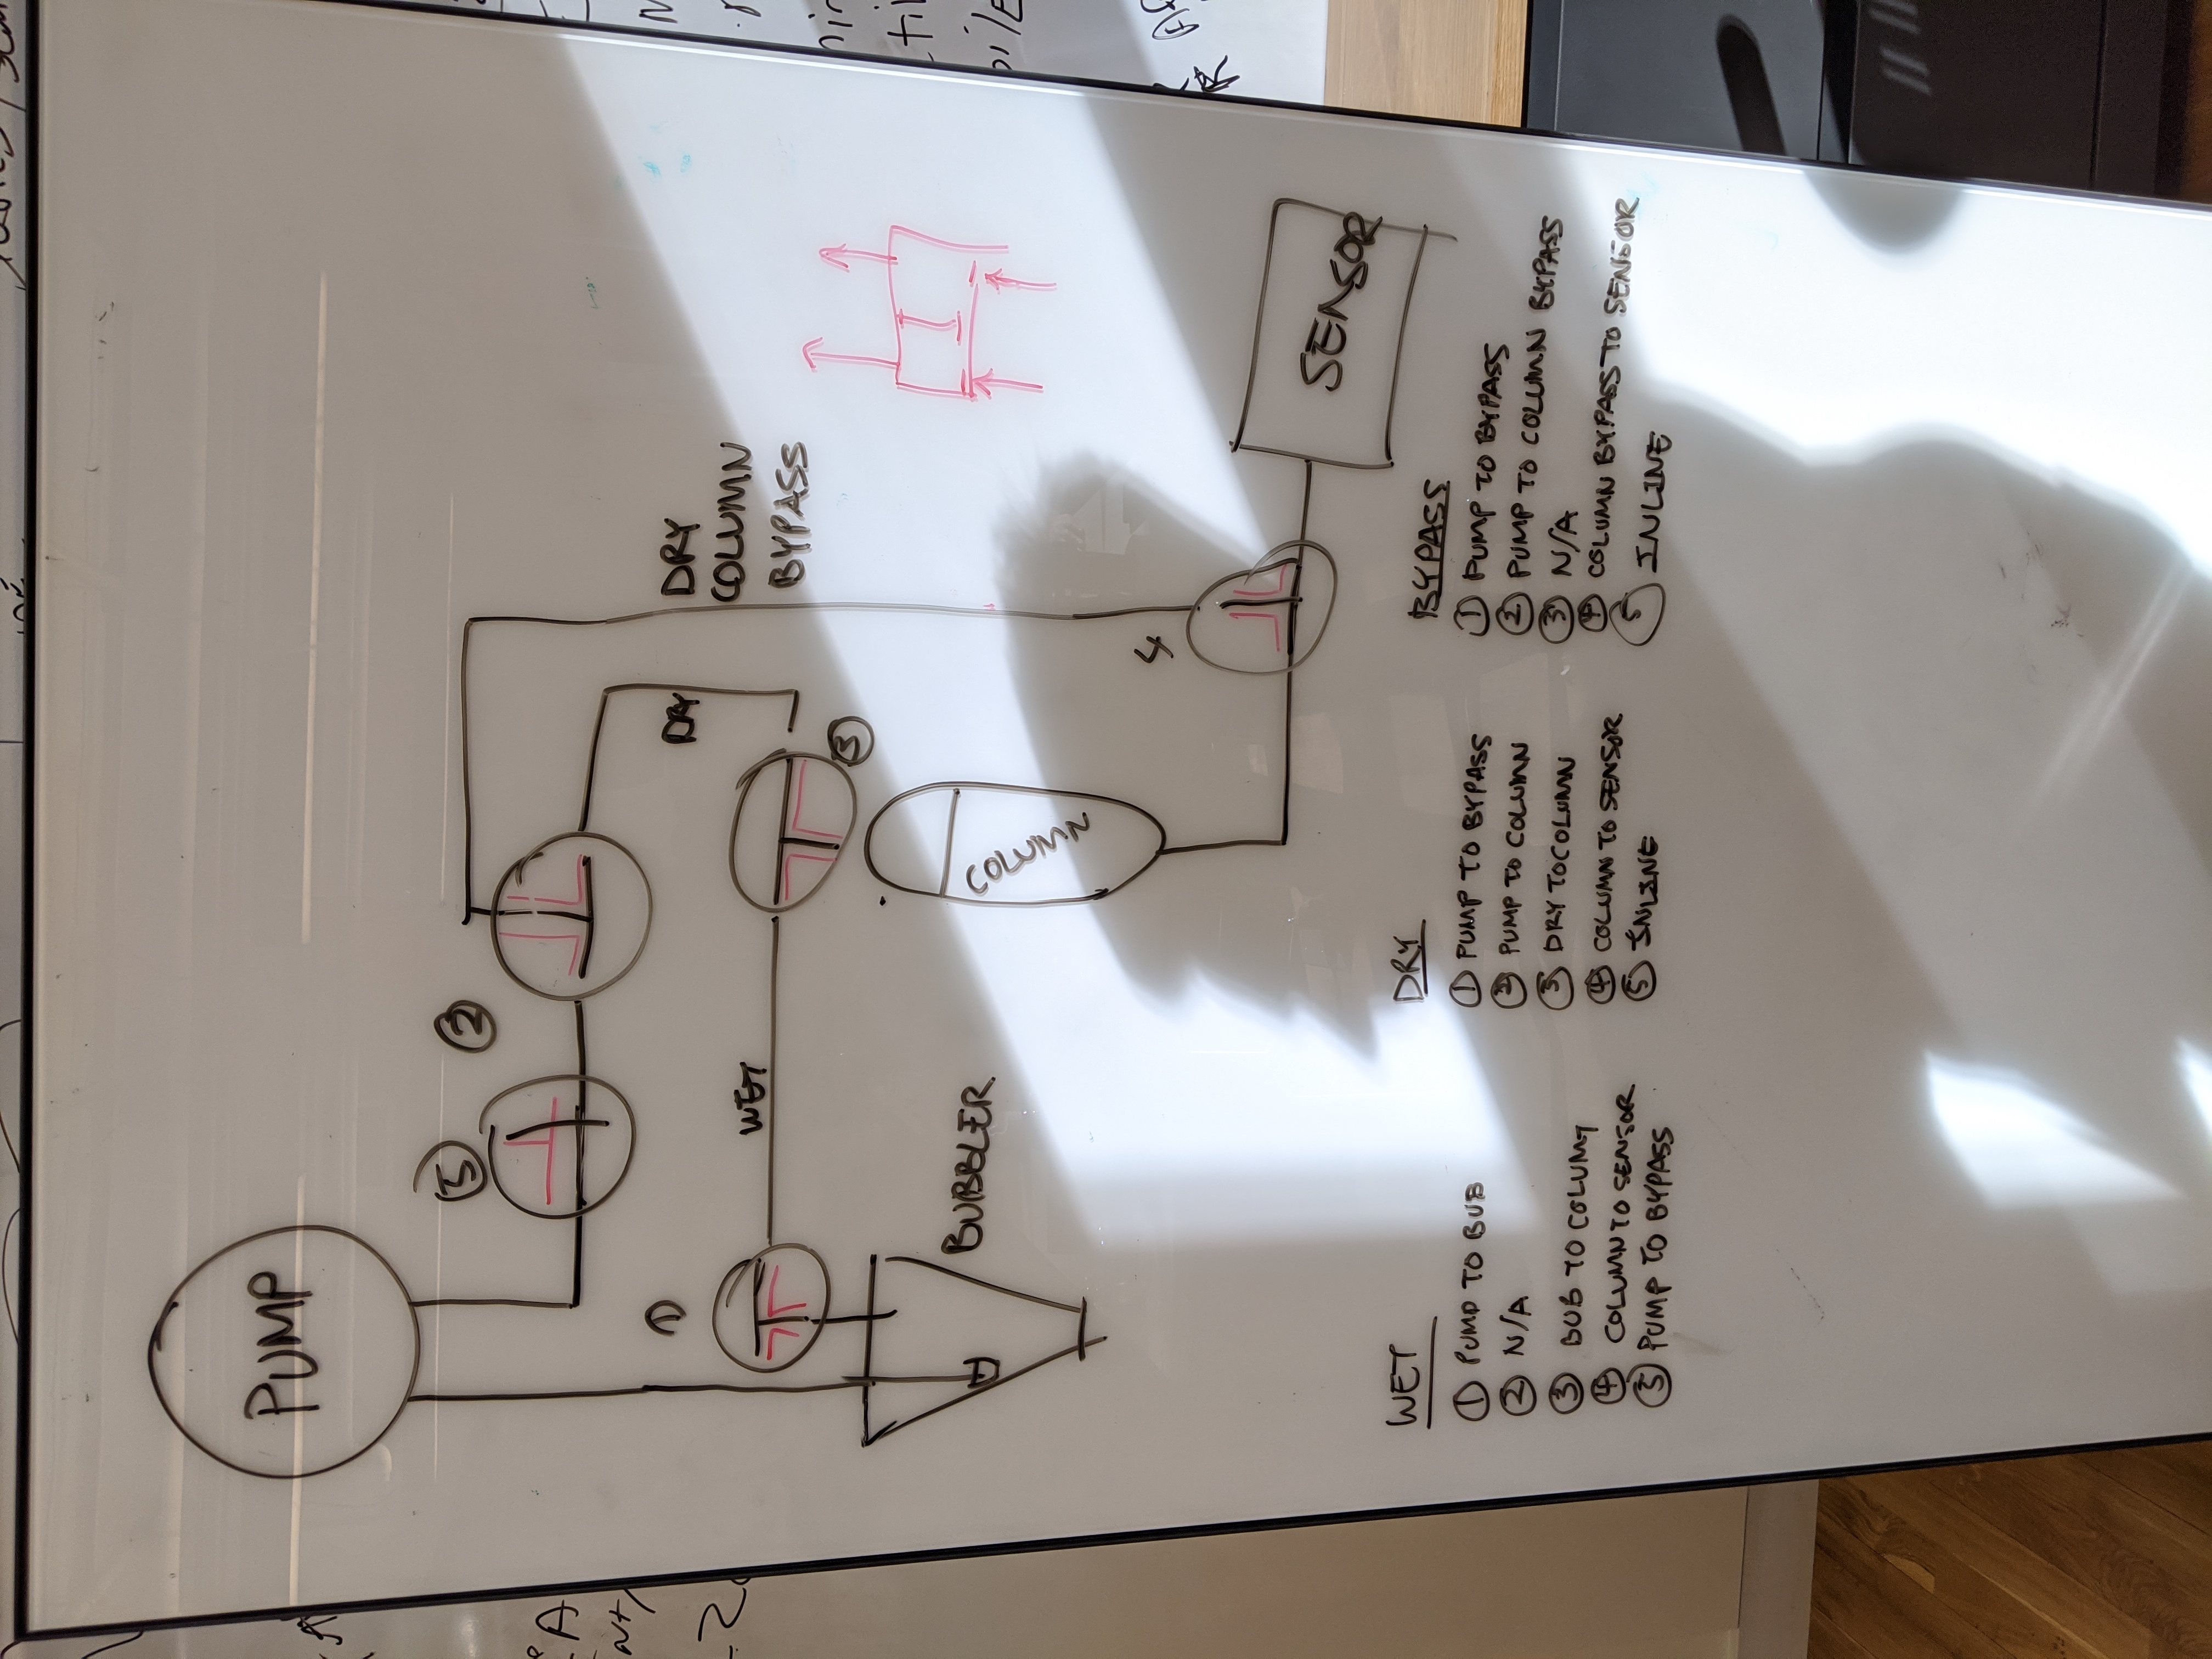 PUMP
5
2
1
WET
DRY
DRY
COLUMN
BYPASS
3
BUBBLER
COLUMN
4
SENSOR
WET
1 PUMP TO BUB
2 N/A
3 BUB TO COLUMN
4 COLUMN TO SENSOR
5 PUMP TO BYPASS
DRY
1 PUMP TO BYPASS
2 PUMP TO COLUMN
3 DRY TO COLUMN
4 COLUMN TO SENSOR
5 INLINE
BYPASS
1 PUMP TO BYPASS
2 PUMP TO COLUMN BYPASS
3 N/A
4 COLUMN BYPASS TO SENSOR
5 INLINE